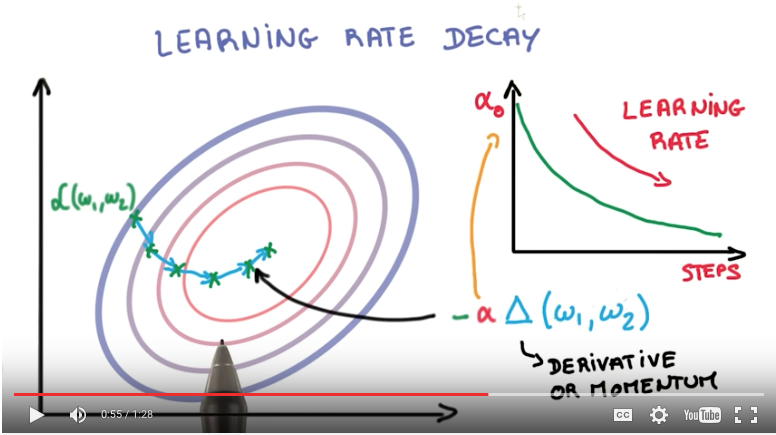 LEARNING RATE DECAY
α₀
LEARNING
RATE
ℒ(ω₁,ω₂)
STEPS
-α Δ(ω₁,ω₂)
DERIVATIVE
OR MOMENTUM
0:55 / 1:28
CC
YouTube